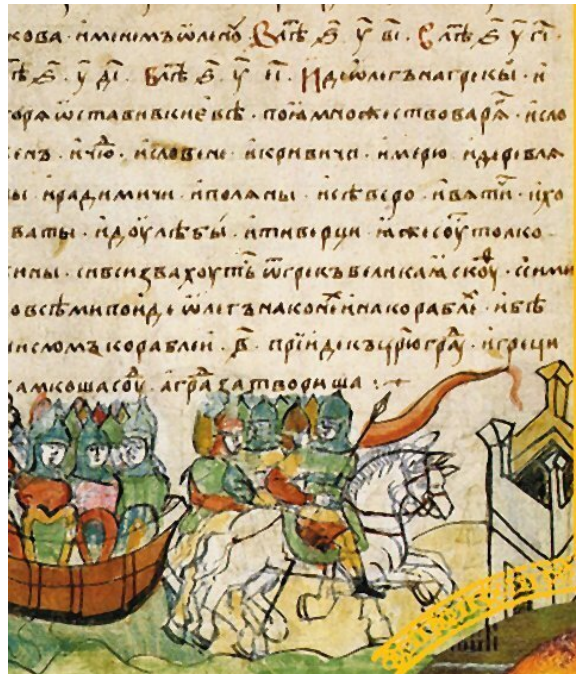 кова · именимъ ѡленоу · В лѣⷮ ҂ѕ҃ у҃ в҃і · В лѣⷮ ҂ѕ҃ у҃ г҃і ·
ѣⷮ ҂ѕ҃ у҃ д҃і · В лѣⷮ ҂ѕ҃ у҃ е҃і · Иде ѡлегъ на грекы · и
горѧ ѡставив киевѣ · поꙗ множество варѧ · и сло
енъ · и чюⷣ · и словене · и кривичи · и мерю · и деревлѧ
ы · и радимичи · и полѧны · и сѣверо · и вѧтиⷱ · и хо
ваты · и доулѣбы · и тиверци · ꙗже соуⷮ толко
ины · си вси звахоуть ѿ грекъ великаꙗ скоуⷴ · с сими
о всѣми поиде ѡлегъ на конеⷯ и на кораблеⷯ · и бѣ
числомъ кораблеи · в҃ · прїиде къ црюграⷣ · и греци
амкоша соуⷣ · а граⷣ затвориша :~